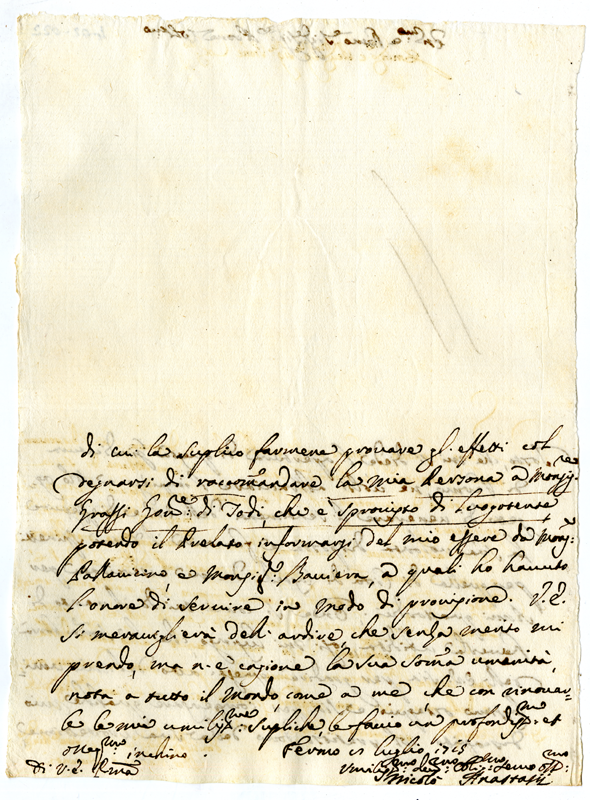 di cui la suplico farmene provare gl'effetti col
degnarsi di raccomandare la mia Persona a Monsig.re
Grassi Gov.re di Todi, che è sprovisto di Luogotente
potendo il Prelato informarsi del mio essere da Mons.r
Pallavicino e Monsig.r Baviera, a quali ho havuto
l'onore di servire in modo di provisione. V.E.
si meraviglierà dell'ardire che senza merito mi
prendo, ma n'è cagione la sua soma umanità,
nota a tutto il Mondo, come a me, che con rinovar-
le le mie umiliss.me supliche, le faccio un profondiss.mo et
osseq.mo inchino. Fermo luglio 1715
Di V.E. R.ma
Nicolò Anastasi